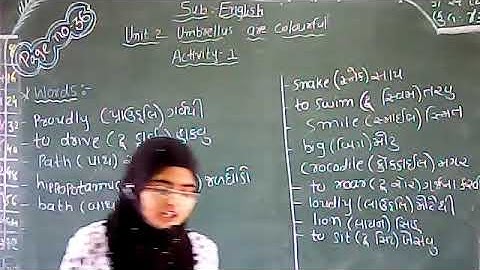 Sub:-English
Unit 2 Umbrellas are Colourful
Activity-1
Page no 35
* Words:-
- Proudly (પ્રાઉડલિ) ગર્વથી
- to drive (ટુ ડ્રાઈવ) હાંકવુ
- Path (પાથ)
- hippopotamus
- bath (બાથ
- Snake (સ્નેક) સાપ
- to swim (ટુ સ્વિમ) તરવુ
- Smile (સ્માઈલ) સ્મિત
- big (બિગ) મોટુ
- Crocodile (ક્રોકોડાઈલ) મગર
- to roar (ટુ રોર) ગર્જના કરવી
- loudly (લાઉડલિ) મોટેથી
- lion (લાયન) સિંહ
- to sit (ટુ સિટ) બેસવુ
8
16
24
32
40
48
56